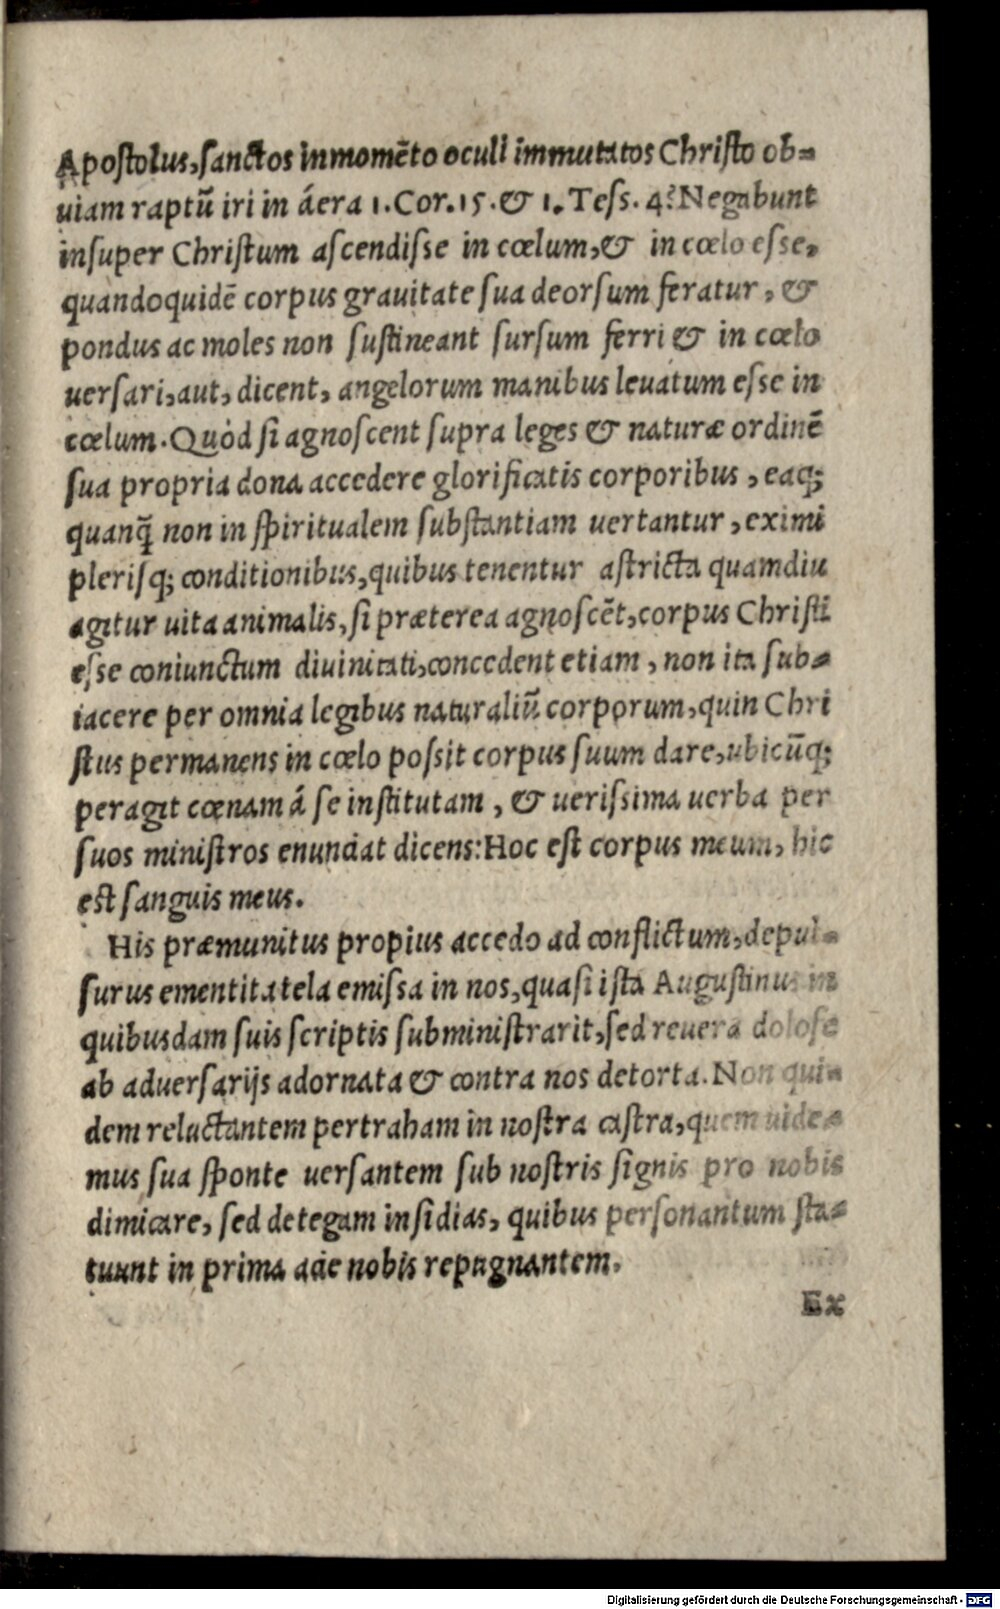 Apostolus, sanctos in momẽto oculi immutatos Christo ob-
uiam raptũ iri in áera 1. Cor. 15. & 1. Tess. 4? Negabunt
insuper Christum ascendisse in cœlum, & in cœlo esse,
quandoquidẽ corpus grauitate sua deorsum feratur, &
pondus ac moles non sustineant sursum ferri & in cœlo
uersari, aut, dicent, angelorum manibus leuatum esse in
cœlum. Quòd si agnoscent supra leges & naturæ ordinẽ
sua propria dona accedere glorificatis corporibus, eaq;
quanq̃ non in spiritualem substantiam uertantur, eximi
plerisq; conditionibus, quibus tenentur astricta quamdiu
agitur uita animalis, si præterea agnoscẽt, corpus Christi
esse coniunctum diuinitati, concedent etiam, non ita sub-
iacere per omnia legibus naturaliũ corporum, quin Chri
stus permanens in cœlo possit corpus suum dare, ubicũq;
peragit cœnam á se institutam, & uerissima uerba per
suos ministros enunciat dicens: Hoc est corpus meum, hic
est sanguis meus.
His præmunitus propius accedo ad conflictum, depul-
surus ementita tela emissa in nos, quasi ista Augustinus in
quibusdam suis scriptis subministrarit, sed reuera dolose
ab aduersarijs adornata & contra nos detorta. Non qui-
dem reluctantem pertraham in nostra castra, quem uide-
mus sua sponte uersantem sub nostris signis pro nobis
dimicare, sed detegam insidias, quibus personantum sta-
tuunt in prima acie nobis repugnantem.
Ex
Digitalisierung gefördert durch die Deutsche Forschungsgemeinschaft - DFG